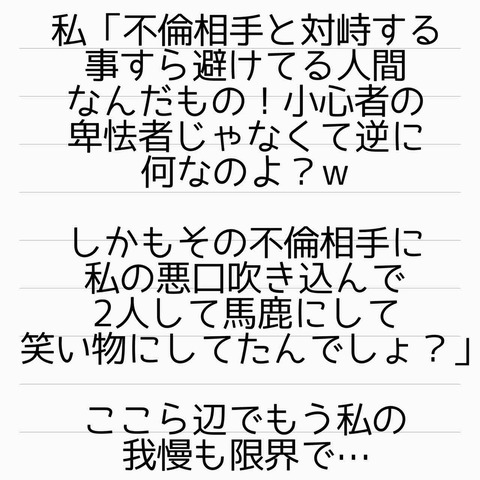 私「不倫相手と対峙する
事すら避けてる人間
なんだもの！小心者の
卑怯者じゃなくて逆に
何なのよ？w
しかもその不倫相手に
私の悪口吹き込んで
2人して馬鹿にして
笑い物にしてたんでしょ？」
ここら辺でもう私の
我慢も限界で…